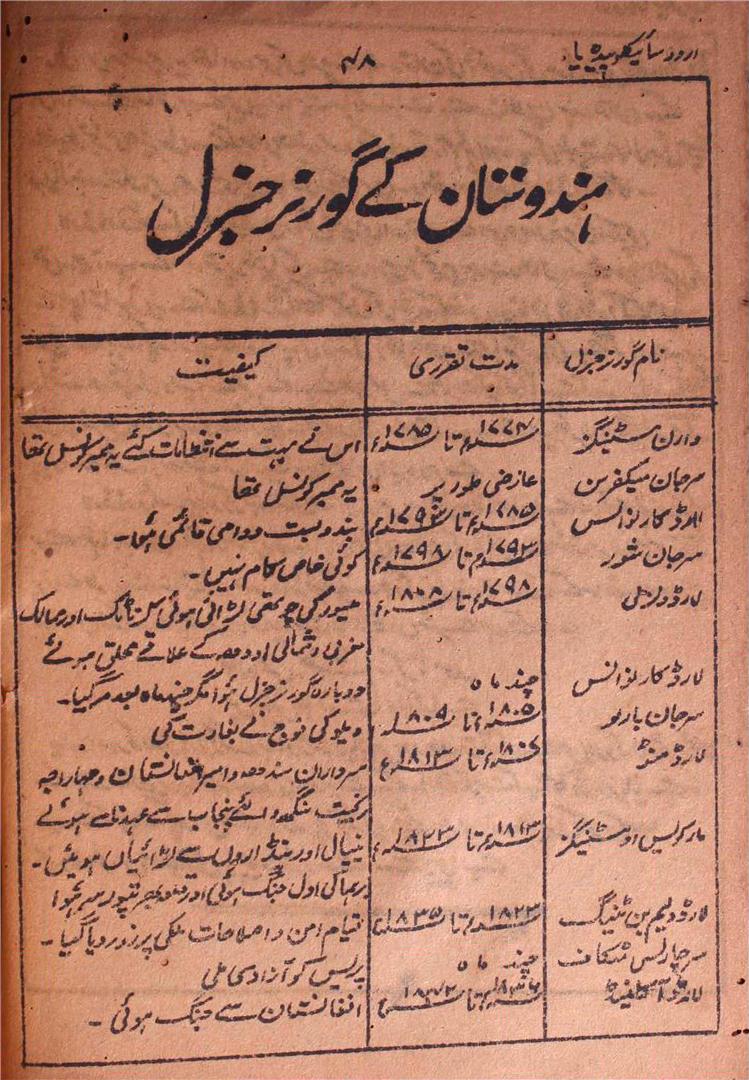 اردو سائیکلوپیڈیا
۴۸
ہندوستان کے گورنر جنرل
نام گورنر جنرل مدت تقرری کیفیت
وارن ہسٹینگز ۱۷۷۴ء تا ۱۷۸۵ء اس نے بہت سے انتظامات کئے یہ ممبر کونسل تھا
سر جان میکفرسن عارضی طور پر یہ ممبر کونسل تھا
لارڈ کارنوالس ۱۷۸۵ء تا بندوبست دوامی قائمی ہؤا۔
سر جان شور ۱۷۹۳ء تا ۱۷۹۸ء کوئی خاص کام نہیں۔
لارڈ ولزلی ۱۷۹۸ء تا میسور کی چوتھی لڑائی ہوئی اور ممالک
مغربی و شمالی اودھ کے علاقے ملحق ہوئے
لارڈ کارنوالس چند ماہ دوبارہ گورنر جنرل ہؤا مگر چند ماہ بعد مر گیا۔
سر جان بارلو ۱۸۰۵ء تا ویلور کی فوج نے بغاوت کی
لارڈ منٹو تا ۱۸۱۳ء سرداران سندھ و امیر افغانستان و مہاراجہ
رنجیت سنگھ والئے پنجاب سے عہدنامے ہوئے
مارکوئس او ہسٹینگز ۱۸۱۳ء تا ۱۸۲۳ء نیپال اور پنڈاروں سے لڑائیاں ہوئیں۔
برہما کی اول جنگ ہوئی اور قلعہ بھرتپور سر ہؤا
لارڈ ولیم بن ٹینگ ۱۸۲۳ء تا ۱۸۳۵ء قیام امن و اصلاحات ملکی پر زور دیا گیا۔
سر چارلس مٹکاف چند ماہ پریس کو آزادی ملی
لارڈ آکلینڈ ۱۸۳۶ء تا افغانستان سے جنگ ہوئی۔